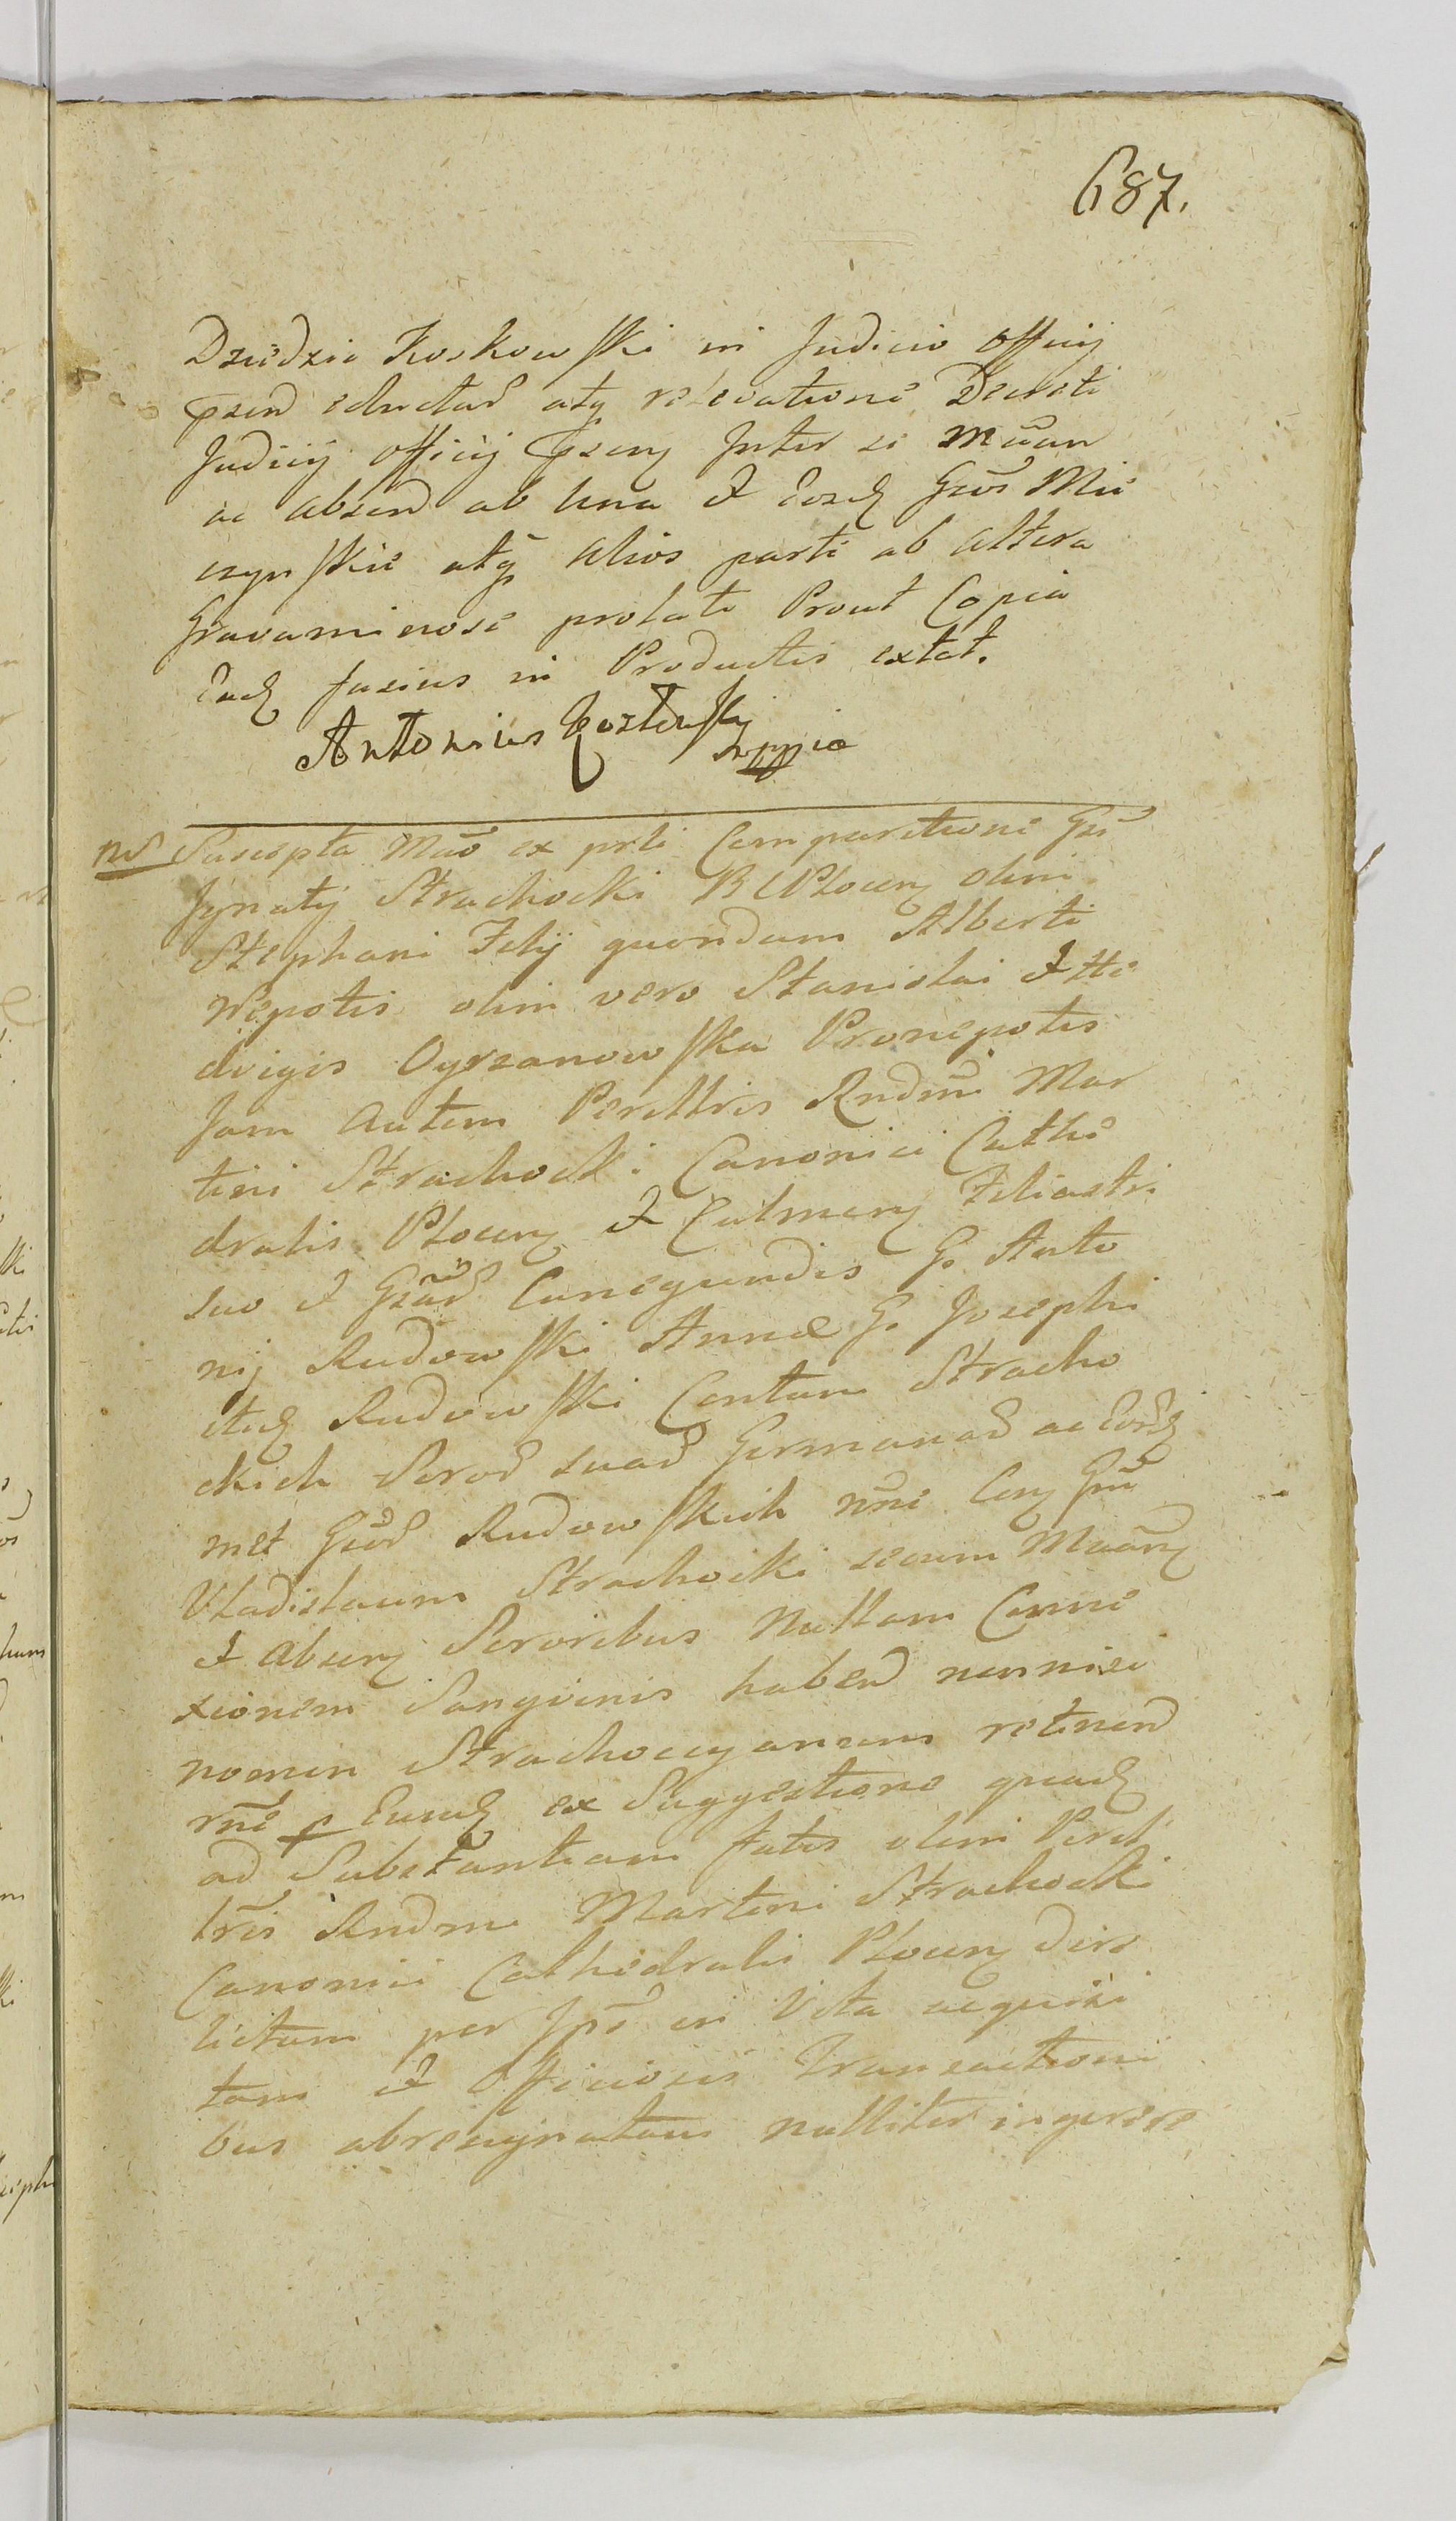 687.
Dziedzic Koskowski in Judicio Officij
pzen eductas atq relevatione Decreti
Judicij Officij pzen Inter se Muan
ac absen ab una et Eosd Gsos Mie
czynskie atq alios parte ab altera
Gravaminose prolati Prout Copia
Ead fusius in Productis extat.
Antonius Kozłowsky
mppia
nd Suscepta Mao ex prti Comparitione Gsi
Ignatij Strachocki B Płocen olim
Stephani Filij quondam Alberti
Nepotis olim vero Stanislai et He
dvigis Ogrzanowska Pronepotis
Jam autem Perillris Rndmi Mar
tini Strachocki Canonici Cathe
dralis Płocen et Culmen Filiastri
suo et Gsar Cunegundis G. Anto
nij Rudowski Annæ G. Josephi
itid Rudowski Contum Stracho
ckich Soror suar Germanar ac Eord
met Gsor Rudowskich nni Con Gsu
Vladislaum Strachocki secum Maan
et absen Sororibus Nullam Conne
xionem Sangvinis haben nonnisi
nomen Strachoccyanum retinen
rne p Eund ex Suggestione quad
ad Substantiam fatis olim Peril
lris Rndmi Martini Strachocki
Canonici Cathedralis Płocen dere
lictam per Ips in Vita acquisi
tam et Officiosis Transactioni
bus abresignatam nulliter ingerere